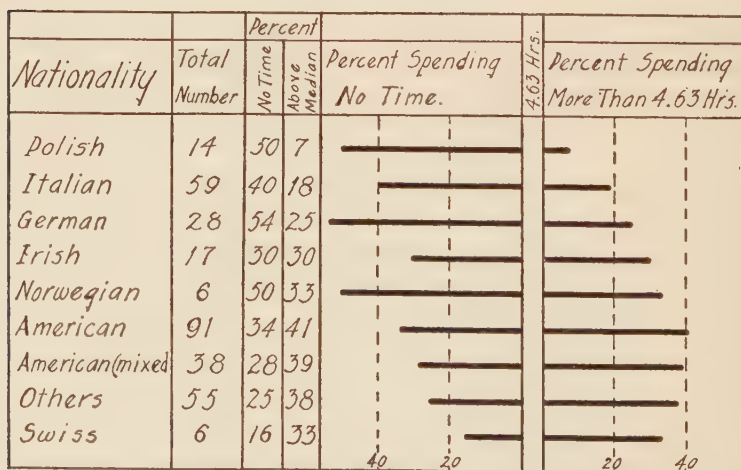 Percent
Nationality Total Number No Time Above Median Percent Spending No Time. 4.63 Hrs. Percent Spending More Than 4.63 Hrs.
Polish 14 50 7
Italian 59 40 18
German 28 54 25
Irish 17 30 30
Norwegian 6 50 33
American 91 34 41
American(mixed 38 28 39
Others 55 25 38
Swiss 6 16 33
40 20 20 40